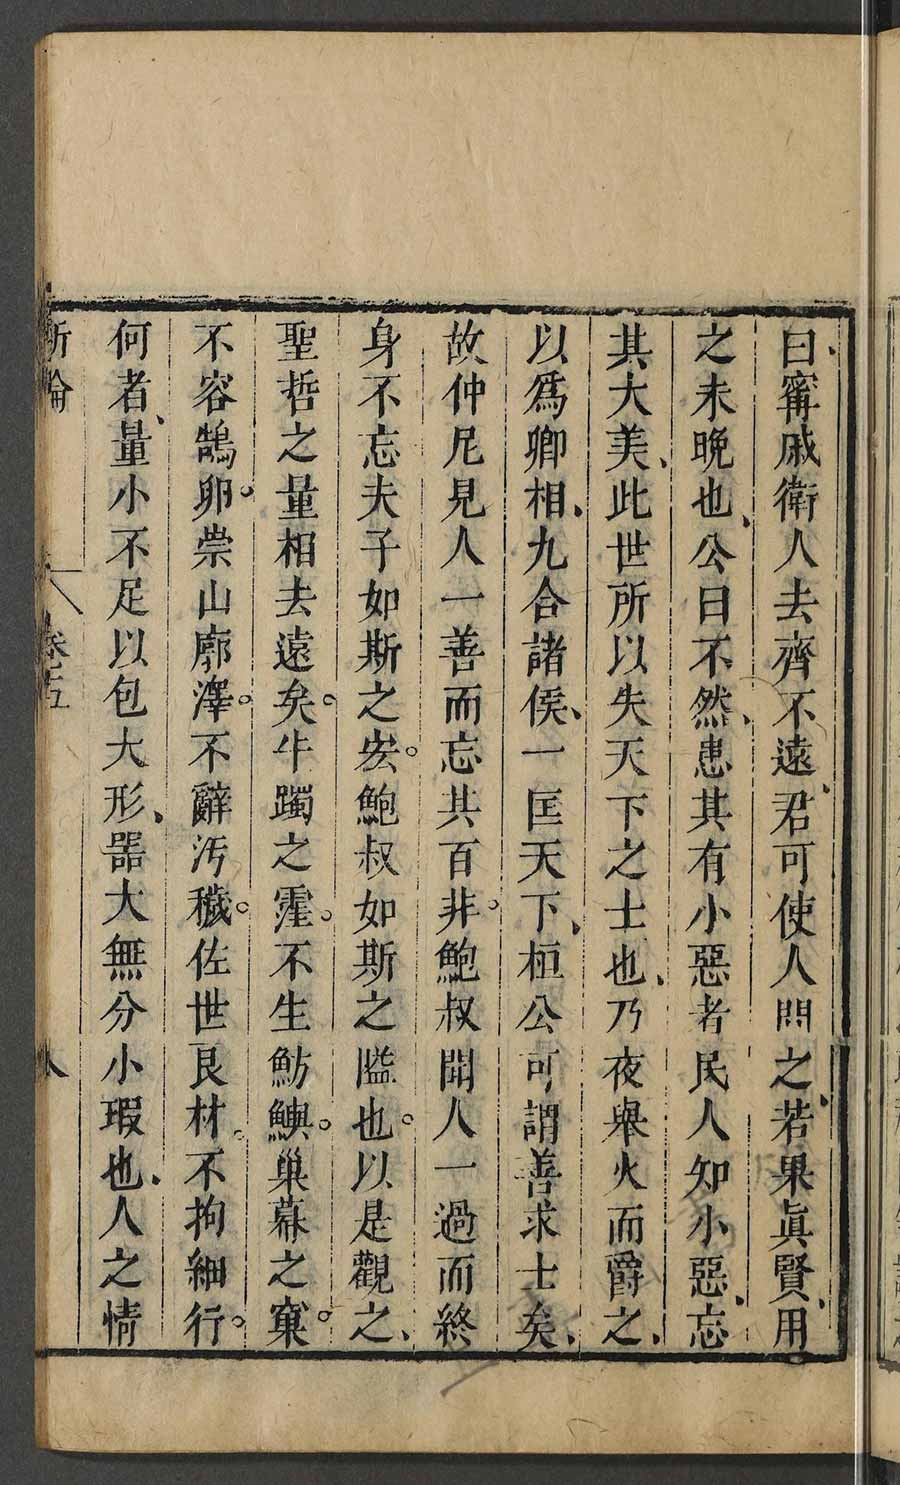 曰甯戚衛人去齊不遠君可使人問之若果眞賢用
之未晚也公曰不然患其有小惡者民人知小惡忘
其大美此世所以失天下之士也乃夜舉火而爵之
以爲卿相九合諸侯一匡天下桓公可謂善求士矣
故仲尼見人一善而忘其百非鮑叔聞人一過而終
身不忘夫子如斯之宏鮑叔如斯之隘也以是觀之
聖哲之量相去遠矣牛躅之窪不生魴鱮巢幕之窠
不容鵠卵崇山廓澤不辭汚穢佐世良材不拘細行
何者量小不足以包大形器大無分小瑕也人之情
新論
卷五
八